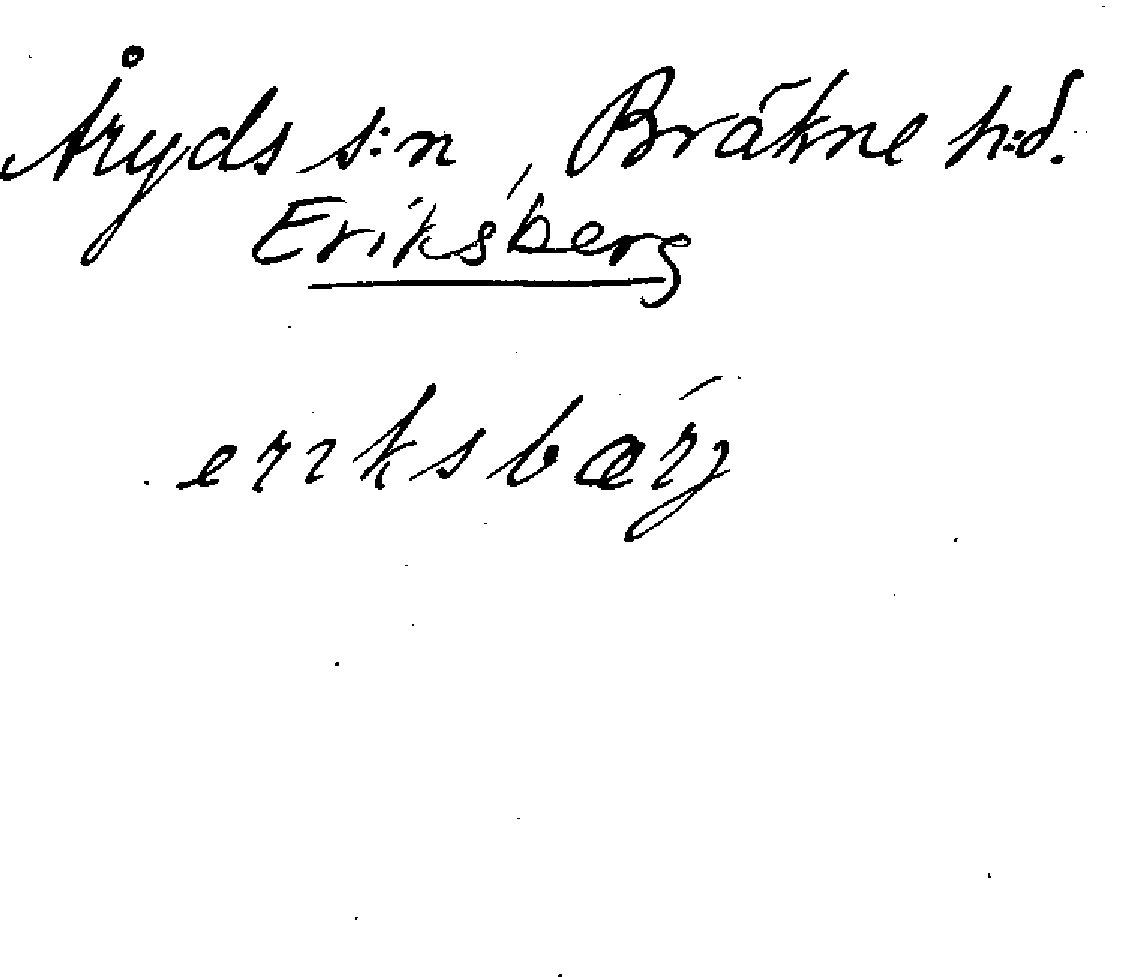 Åryds s:n, Bräkne h:d.
Eriksberg
eriksbærj